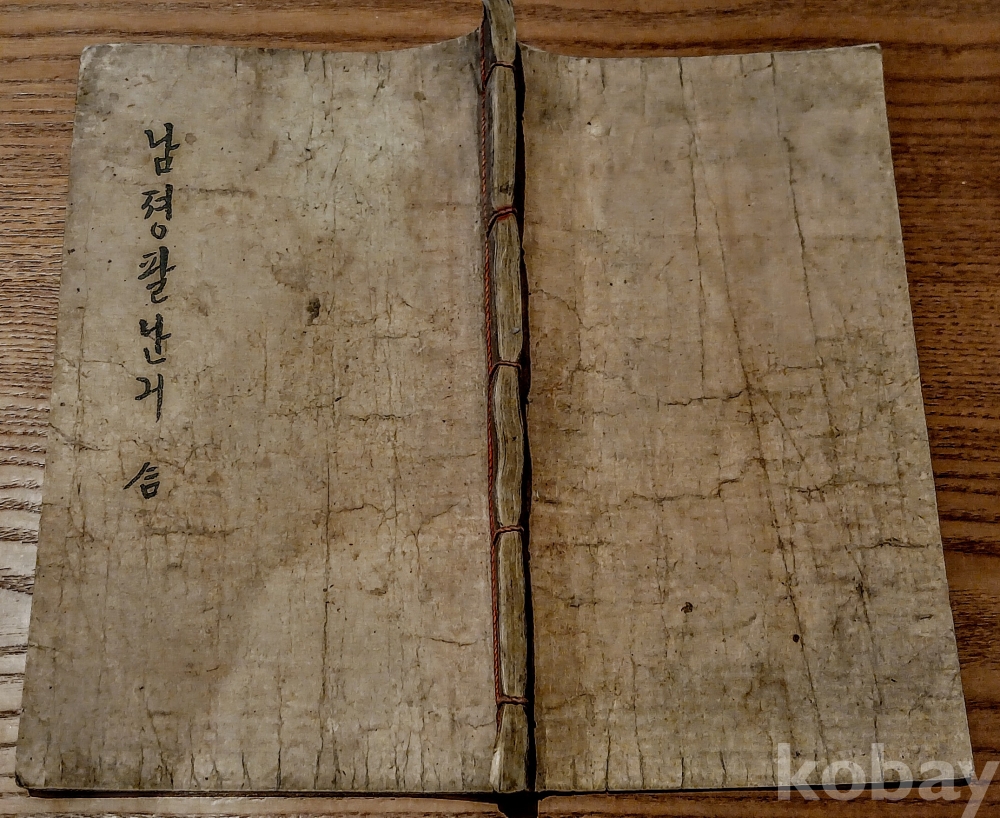 남졍팔난긔 合
kobay